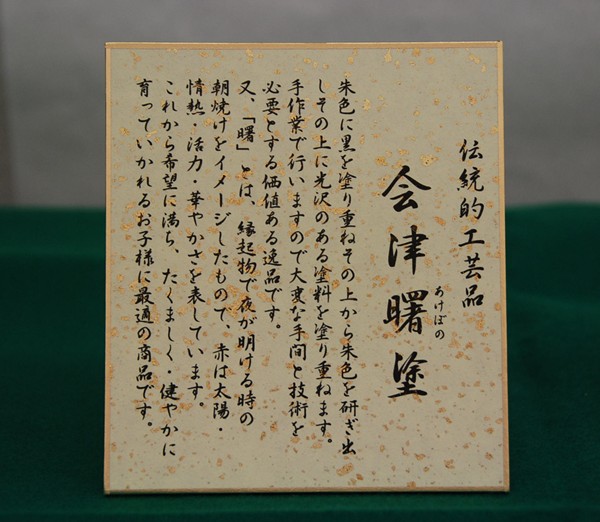 伝統的工芸品
会津曙塗
あけぼの
朱色に黒を塗り重ねその上から朱色を研ぎ出
しその上に光沢のある塗料を塗り重ねます。
手作業で行いますので大変な手間と技術を
必要とする価値ある逸品です。
又、「曙」とは、縁起物で夜が明ける時の
朝焼けをイメージしたもので、赤は太陽・
情熱・活力・華やかさを表しています。
これから希望に満ち、たくましく・健やかに
育っていかれるお子様に最適の商品です。